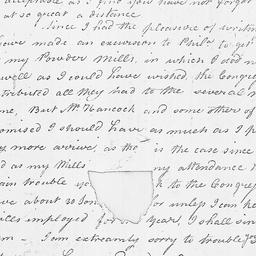 acceptable as I find you have not forgot
at so great a distance.
Since I had the pleasure of writin
have made an excursion to Phila. to get
my Powder Mills, in which I
well as I could have wished, the Congre
tributed all they had to the several
me, But Mr. Hancock and some other of
omised I should have as much as I
more arrive, as the is the case since
d as my Mills my attendance
ain trouble to the Congre
ve about 30 for unless I can
ills employed for year, I shall
I am extreamly sorry to trouble you